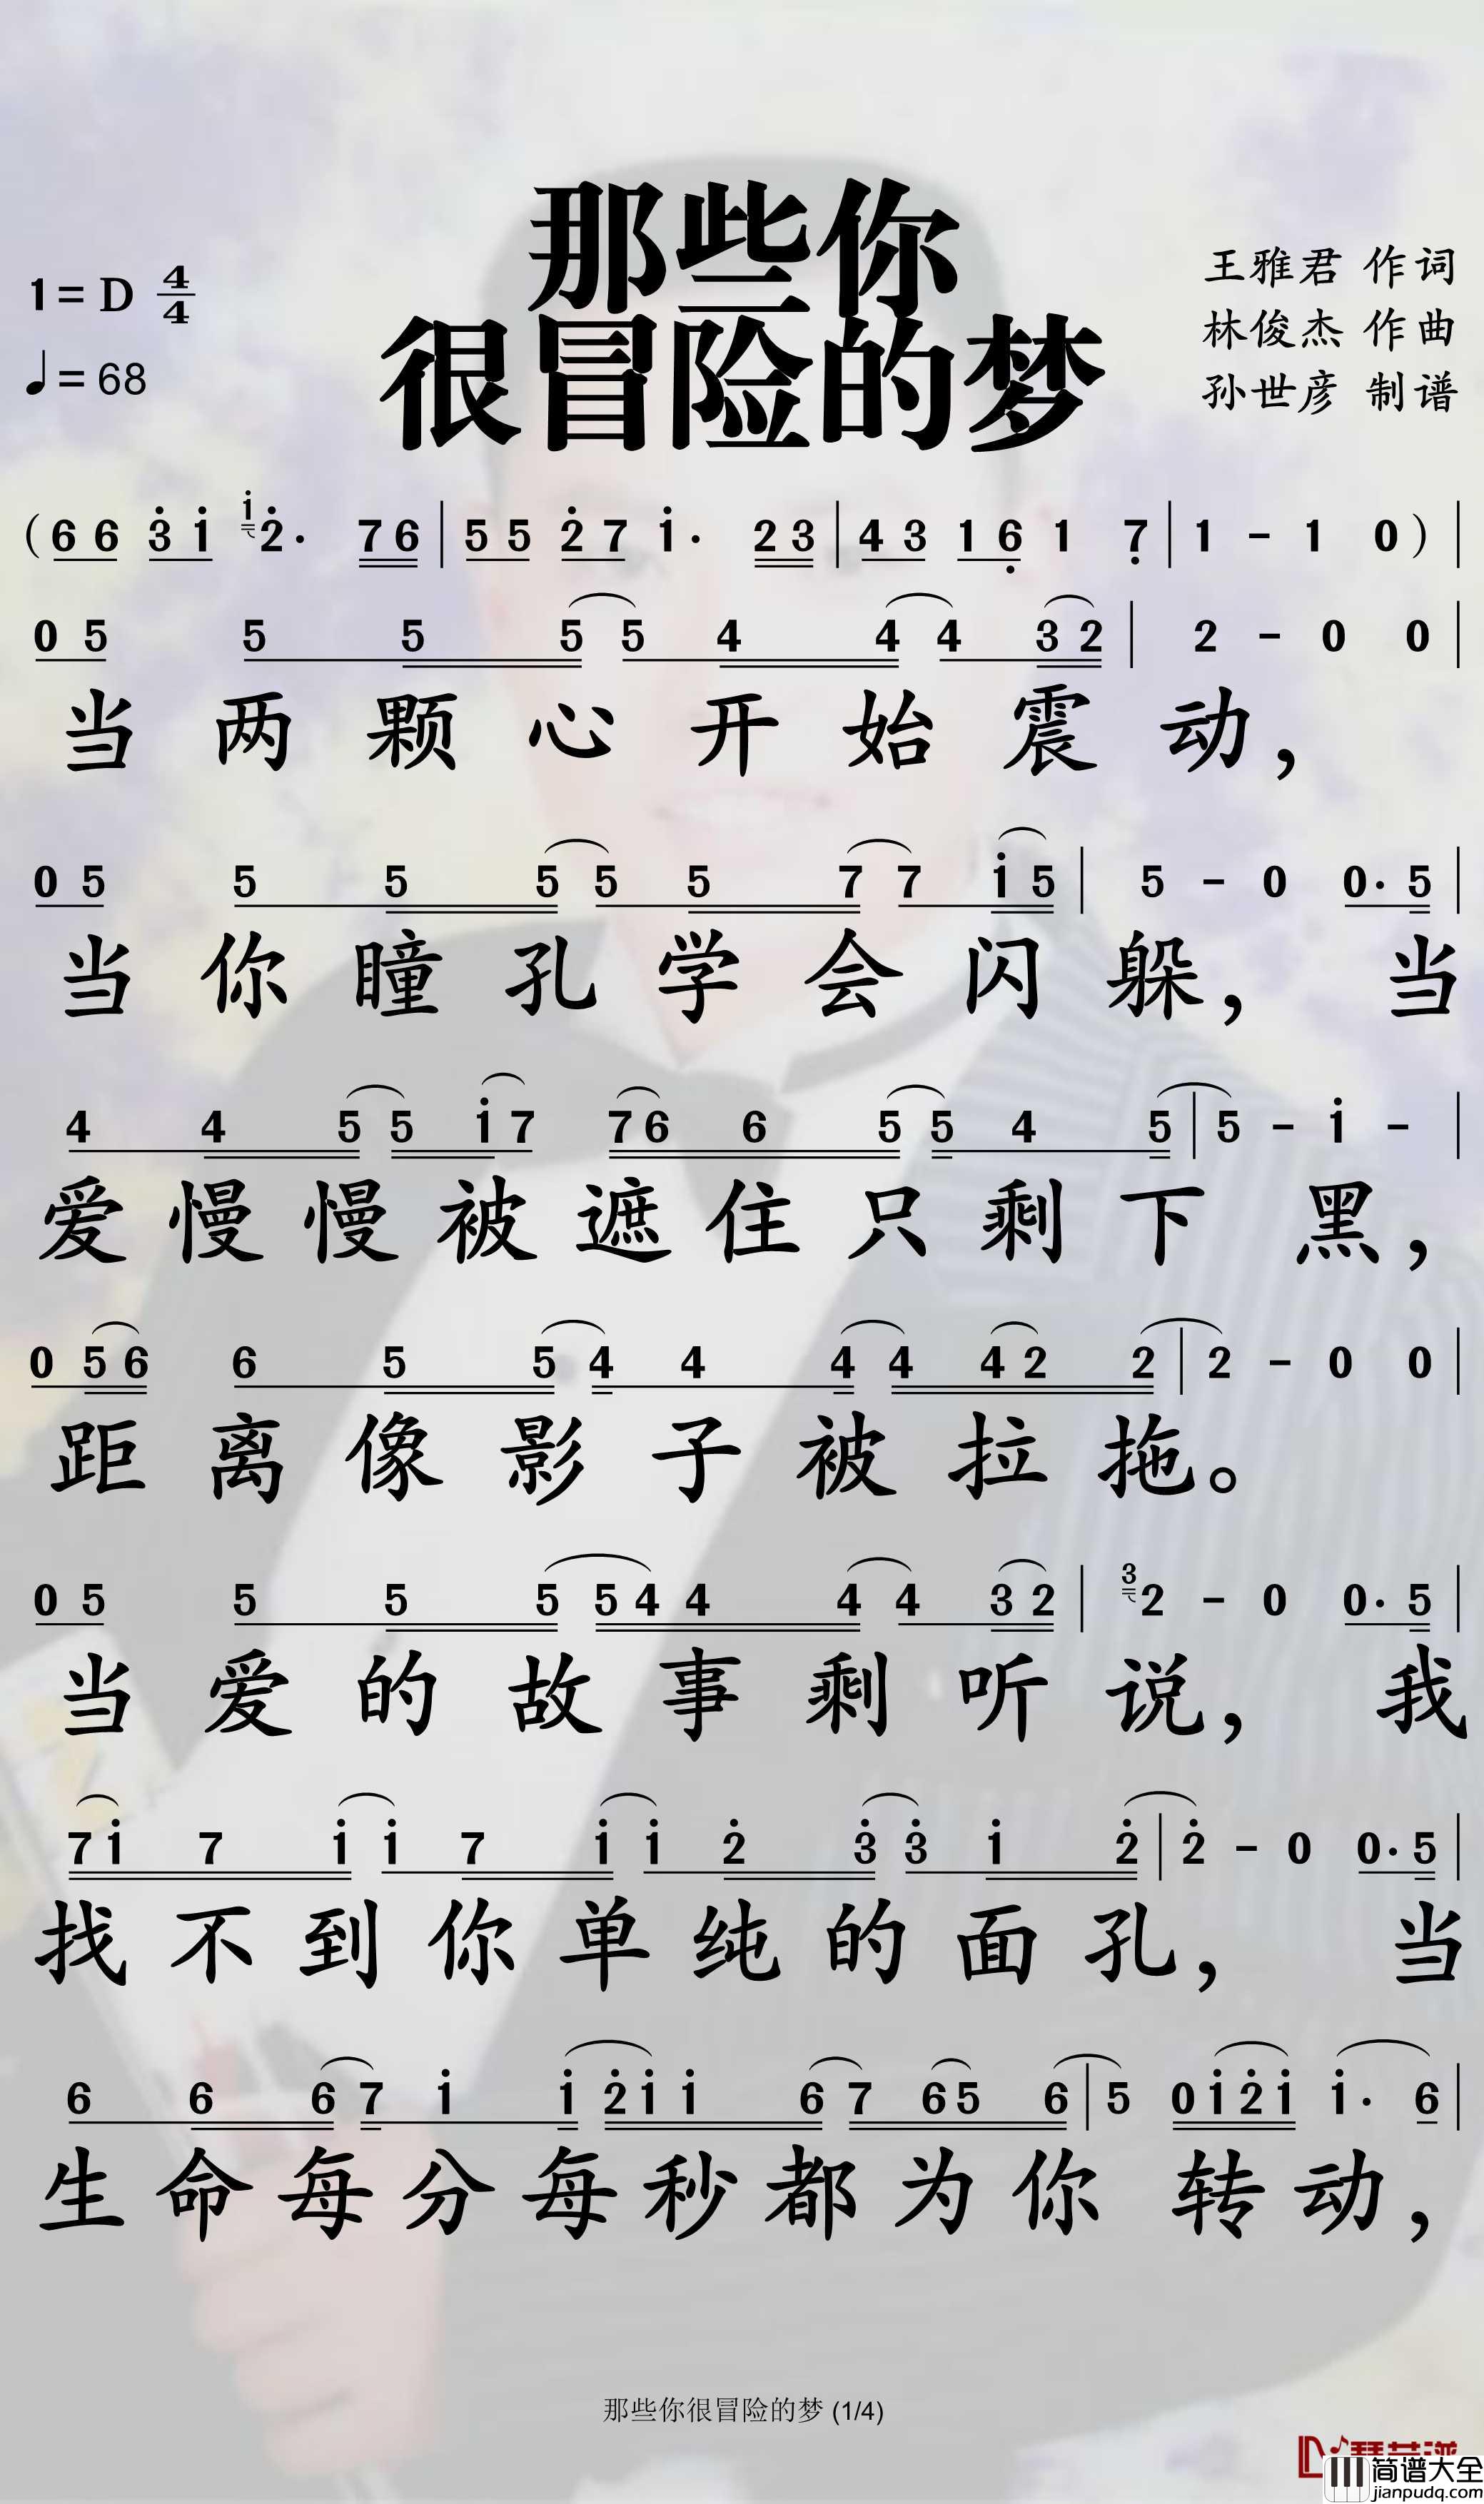 那些你
很冒险的梦
1=D 4/4
♩=68
王雅君 作词
林俊杰 作曲
孙世彦 制谱
（6 6 3̇ 1̇ 1̇ 2̇· 7 6 | 5 5 2̇ 7 1̇· 2 3 | 4 3 1 6̣ 1 7̣ | 1 - 1 0） |
0 5 5 5 5 5 4 4 4 3 2 | 2 - 0 0 |
当两颗心开始震动，
0 5 5 5 5 5 5 7 7 1̇ 5 | 5 - 0 0· 5 |
当你瞳孔学会闪躲，当
4 4 5 5 1̇ 7 7 6 6 5 5 4 5 | 5 - 1̇ - |
爱慢慢被遮住只剩下黑，
0 5 6 6 5 5 4 4 4 4 4 2 2 | 2 - 0 0 |
距离像影子被拉拖。
0 5 5 5 5 5 4 4 4 4 3 2 | 3 2 - 0 0· 5 |
当爱的故事剩听说，我
7 1̇ 7 1̇ 1̇ 7 1̇ 1̇ 2̇ 3̇ 3̇ 1̇ 2̇ | 2̇ - 0 0· 5 |
找不到你单纯的面孔，当
6 6 6 7 1̇ 1̇ 2̇ 1̇ 1̇ 6 7 6 5 6 | 5 0 1̇ 2̇ 1̇ 1̇· 6 |
生命每分每秒都为你转动，
那些你很冒险的梦 (1/4)
简谱大全
jianpudq.com